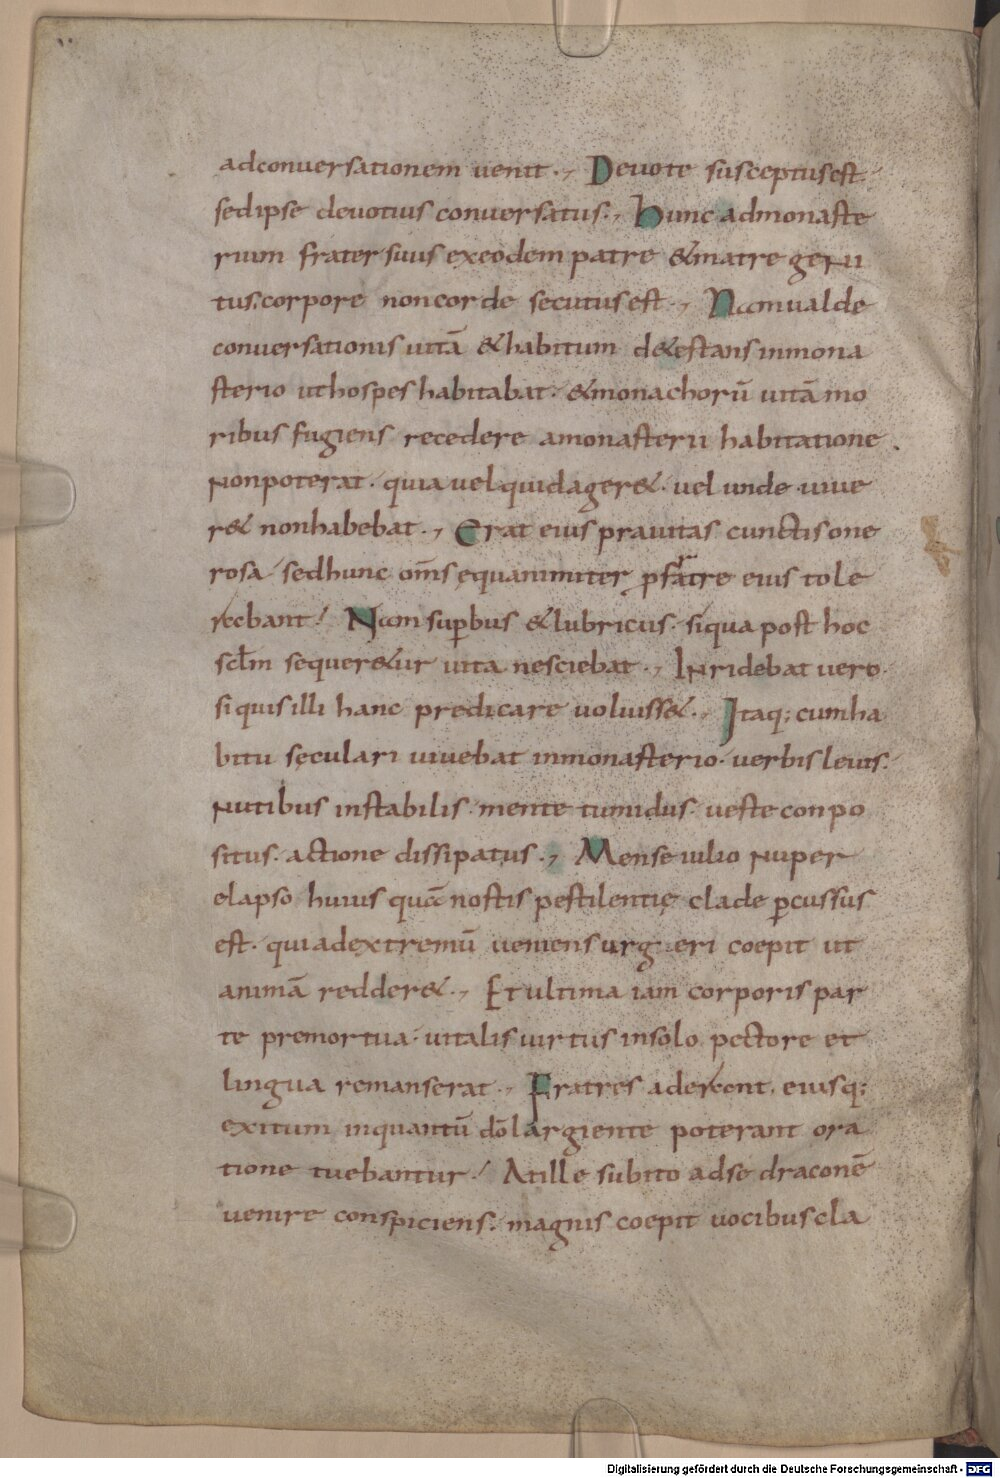 adconuersationem uenit. Deuote susceptusest
sedipse deuotius conuersatus. Hunc admonaste
rium frater suus exeodem patre &matre geni
tus. corpore noncorde secutusest. Namualde
conuersationis uitā &habitum d&estans inmona
sterio uthospes habitabat. &monachorū uitā mo
ribus fugiens recedere amonasterii habitatione
nonpoterat. quia uel quidager&. uel unde uiue
r& nonhabebat. Erat eius prauitas cunctis one
rosa sedhunc om̄s ęquanimiter p̱ fratre eius tole
rabant. Nam sup̱bus &lubricus. siqua post hoc
sc̄lm sequer&ur uita nesciebat. Inridebat uero
siquis illi hanc predicare uoluiss&. Itaq; cumha
bitu sęculari uiuebat inmonasterio. uerbis leuis.
nutibus instabilis. mente tumidus. ueste conpo
situs. actione dissipatus. Mense iulio nuper
elapso huius quā nostis pestilentię clade p̱cussus
est. quiadextremū ueniens urgueri coepit ut
animā redder&. Et ultima iam corporis par
te premortua. uitalis uirtus insolo pectore et
lingua remanserat. Fratres aderant. eiusq;
exitum inquantū dō largiente poterant ora
tione tuebantur. Atille subito adse draconē
uenire conspiciens. magnis coepit uocibus cla
Digitalisierung gefördert durch die Deutsche Forschungsgemeinschaft - DFG